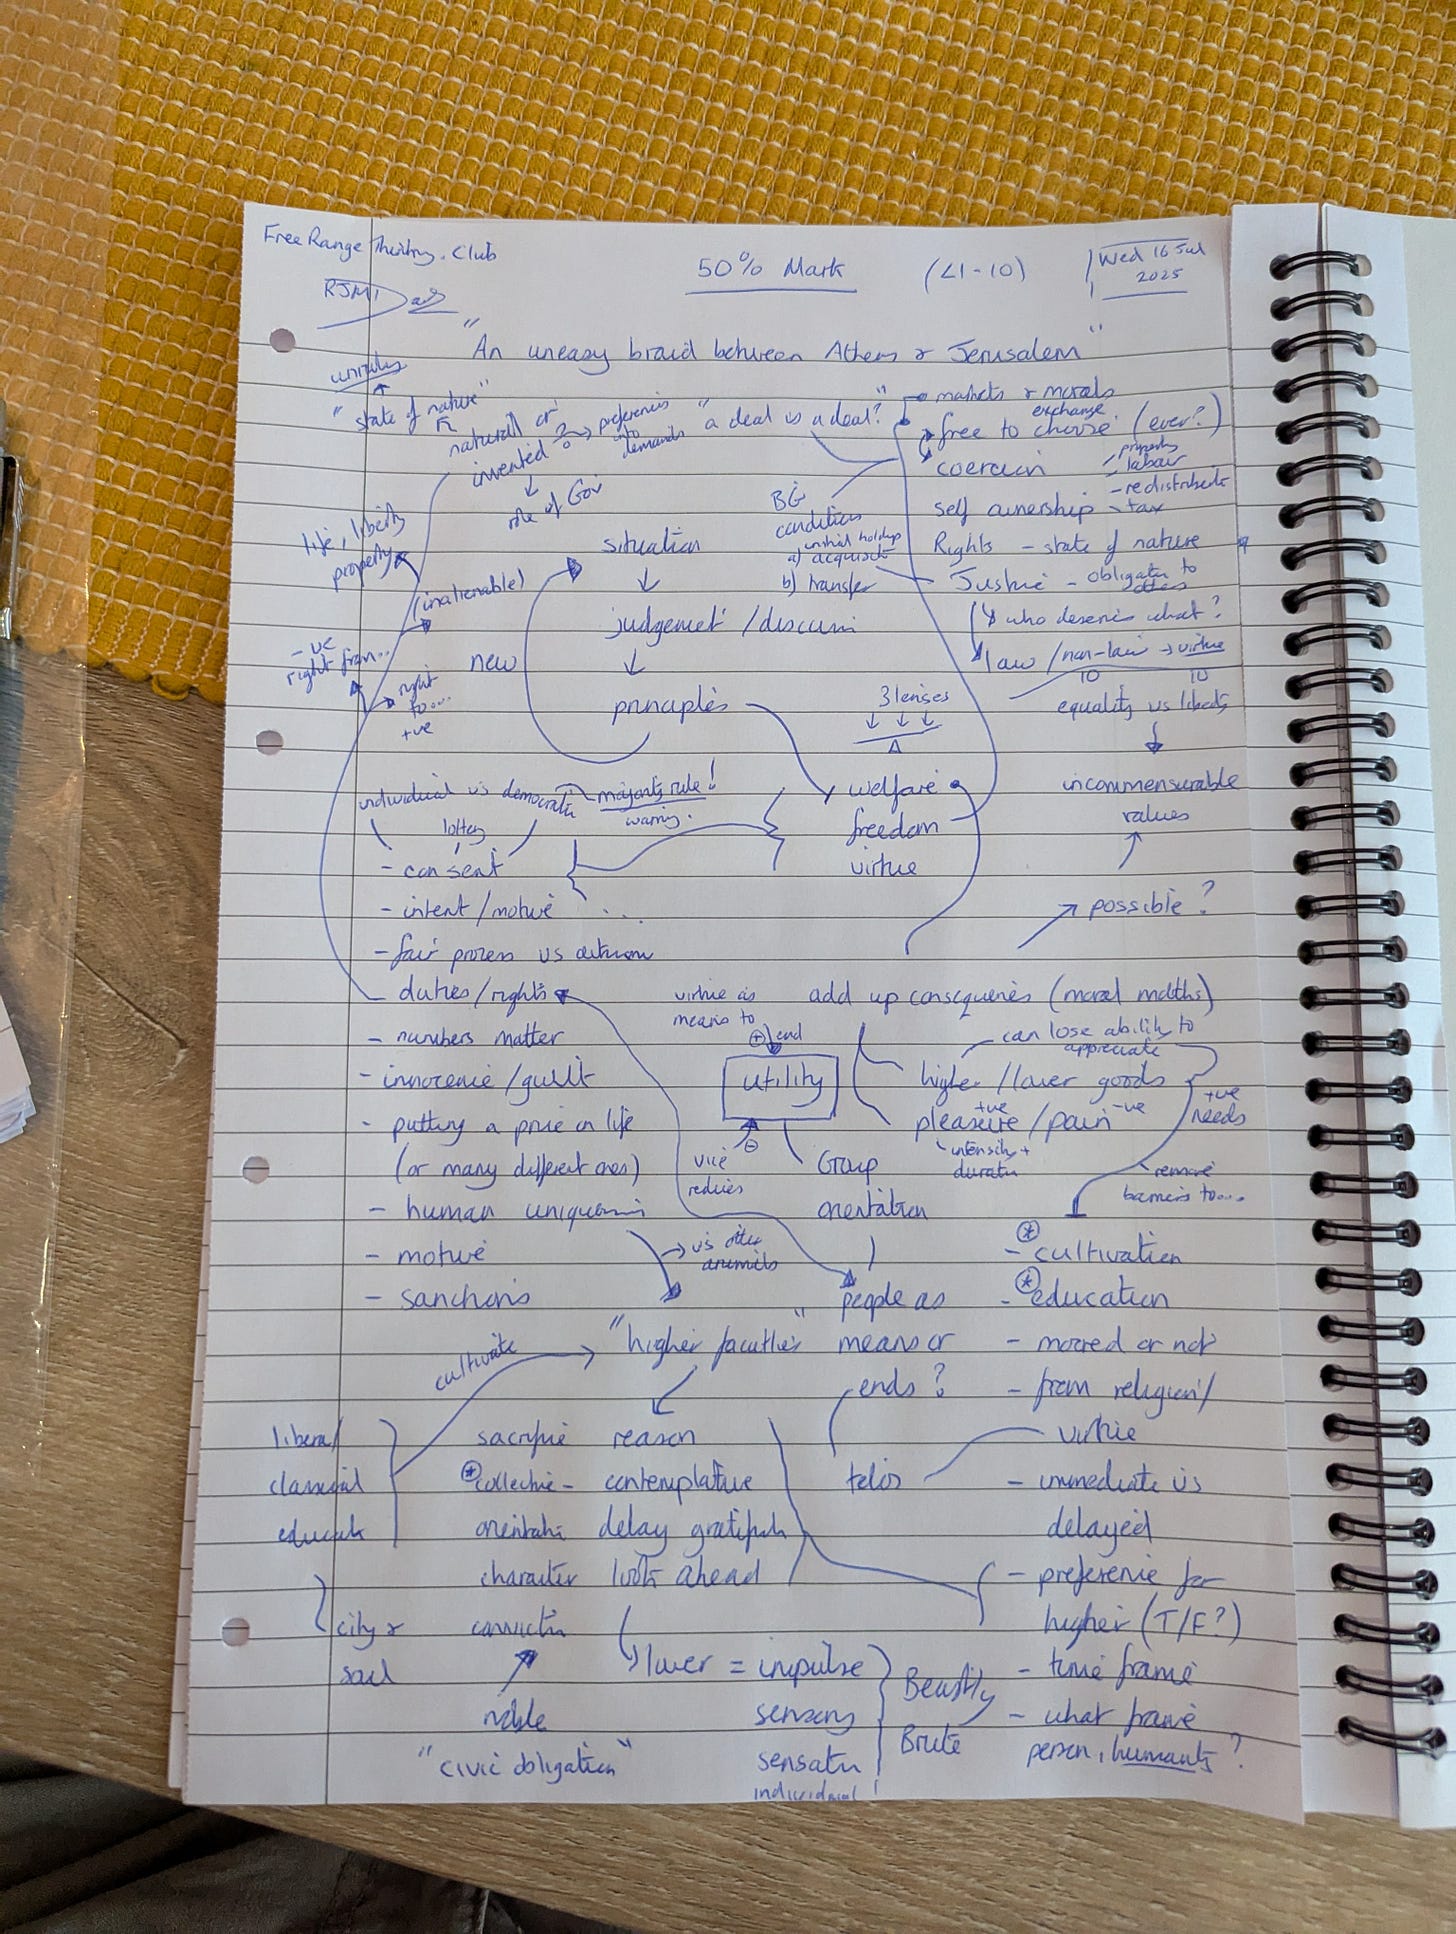 Free Range Thinking. Club
50% Mark (L1-10) Wed 16 Jul
2025
RJM
"An uneasy braid between Athens & Jerusalem"
unruly
"state of nature"
natural or
invented
preferences
into
demands
role of Gov
"a deal is a deal?"
markets & morals
exchange
free to choose (ever?)
coercion
property
labour
self ownership
- redistribute
- tax
Rights - state of nature
Justice - obligation to
others
who deserves what?
law / non-law → virtue
10 10
equality vs liberty
incommensurable
values
possible?
BG
conditions
initial holdup
a) acquisit
b) transfer
life, liberty
property
(inalienable)
-ve
right from...
right
to...
+ve
situation
judgement / discern
principles
new
3 lenses
welfare
freedom
virtue
individual vs democratic
majority rule!
warning.
lottery
- consent
- intent / motive ...
- fair process vs outcome
- duties / rights
- numbers matter
- innocence / guilt
- putting a price on life
(or many different ones)
- human uniqueness
- motive
- sanctions
virtue as
means to
+ end
utility
vice
reduces
-
add up consequences (moral maths)
can lose ability to
appreciate
higher / lower goods
+ve -ve
pleasure / pain
intensity +
duration
+ve
needs
remove
barriers to....
Group
orientation
people as
means or
ends?
telos
vs other
animals
"higher faculties"
cultivate
liberal
classical
educate
city &
soul
sacrifice
* collective -
orientatn
character
conviction
noble
"civic obligation"
reason
contemplative
delay gratificatn
look ahead
lower = impulse
sensory
sensatn
individual!
Beastly
Brute
* - cultivation
* - education
- moved or not
- from religion /
virtue
- immediate vs
delayed
- preference for
higher (T/F?)
- time frame
- what frame
person, humanity?